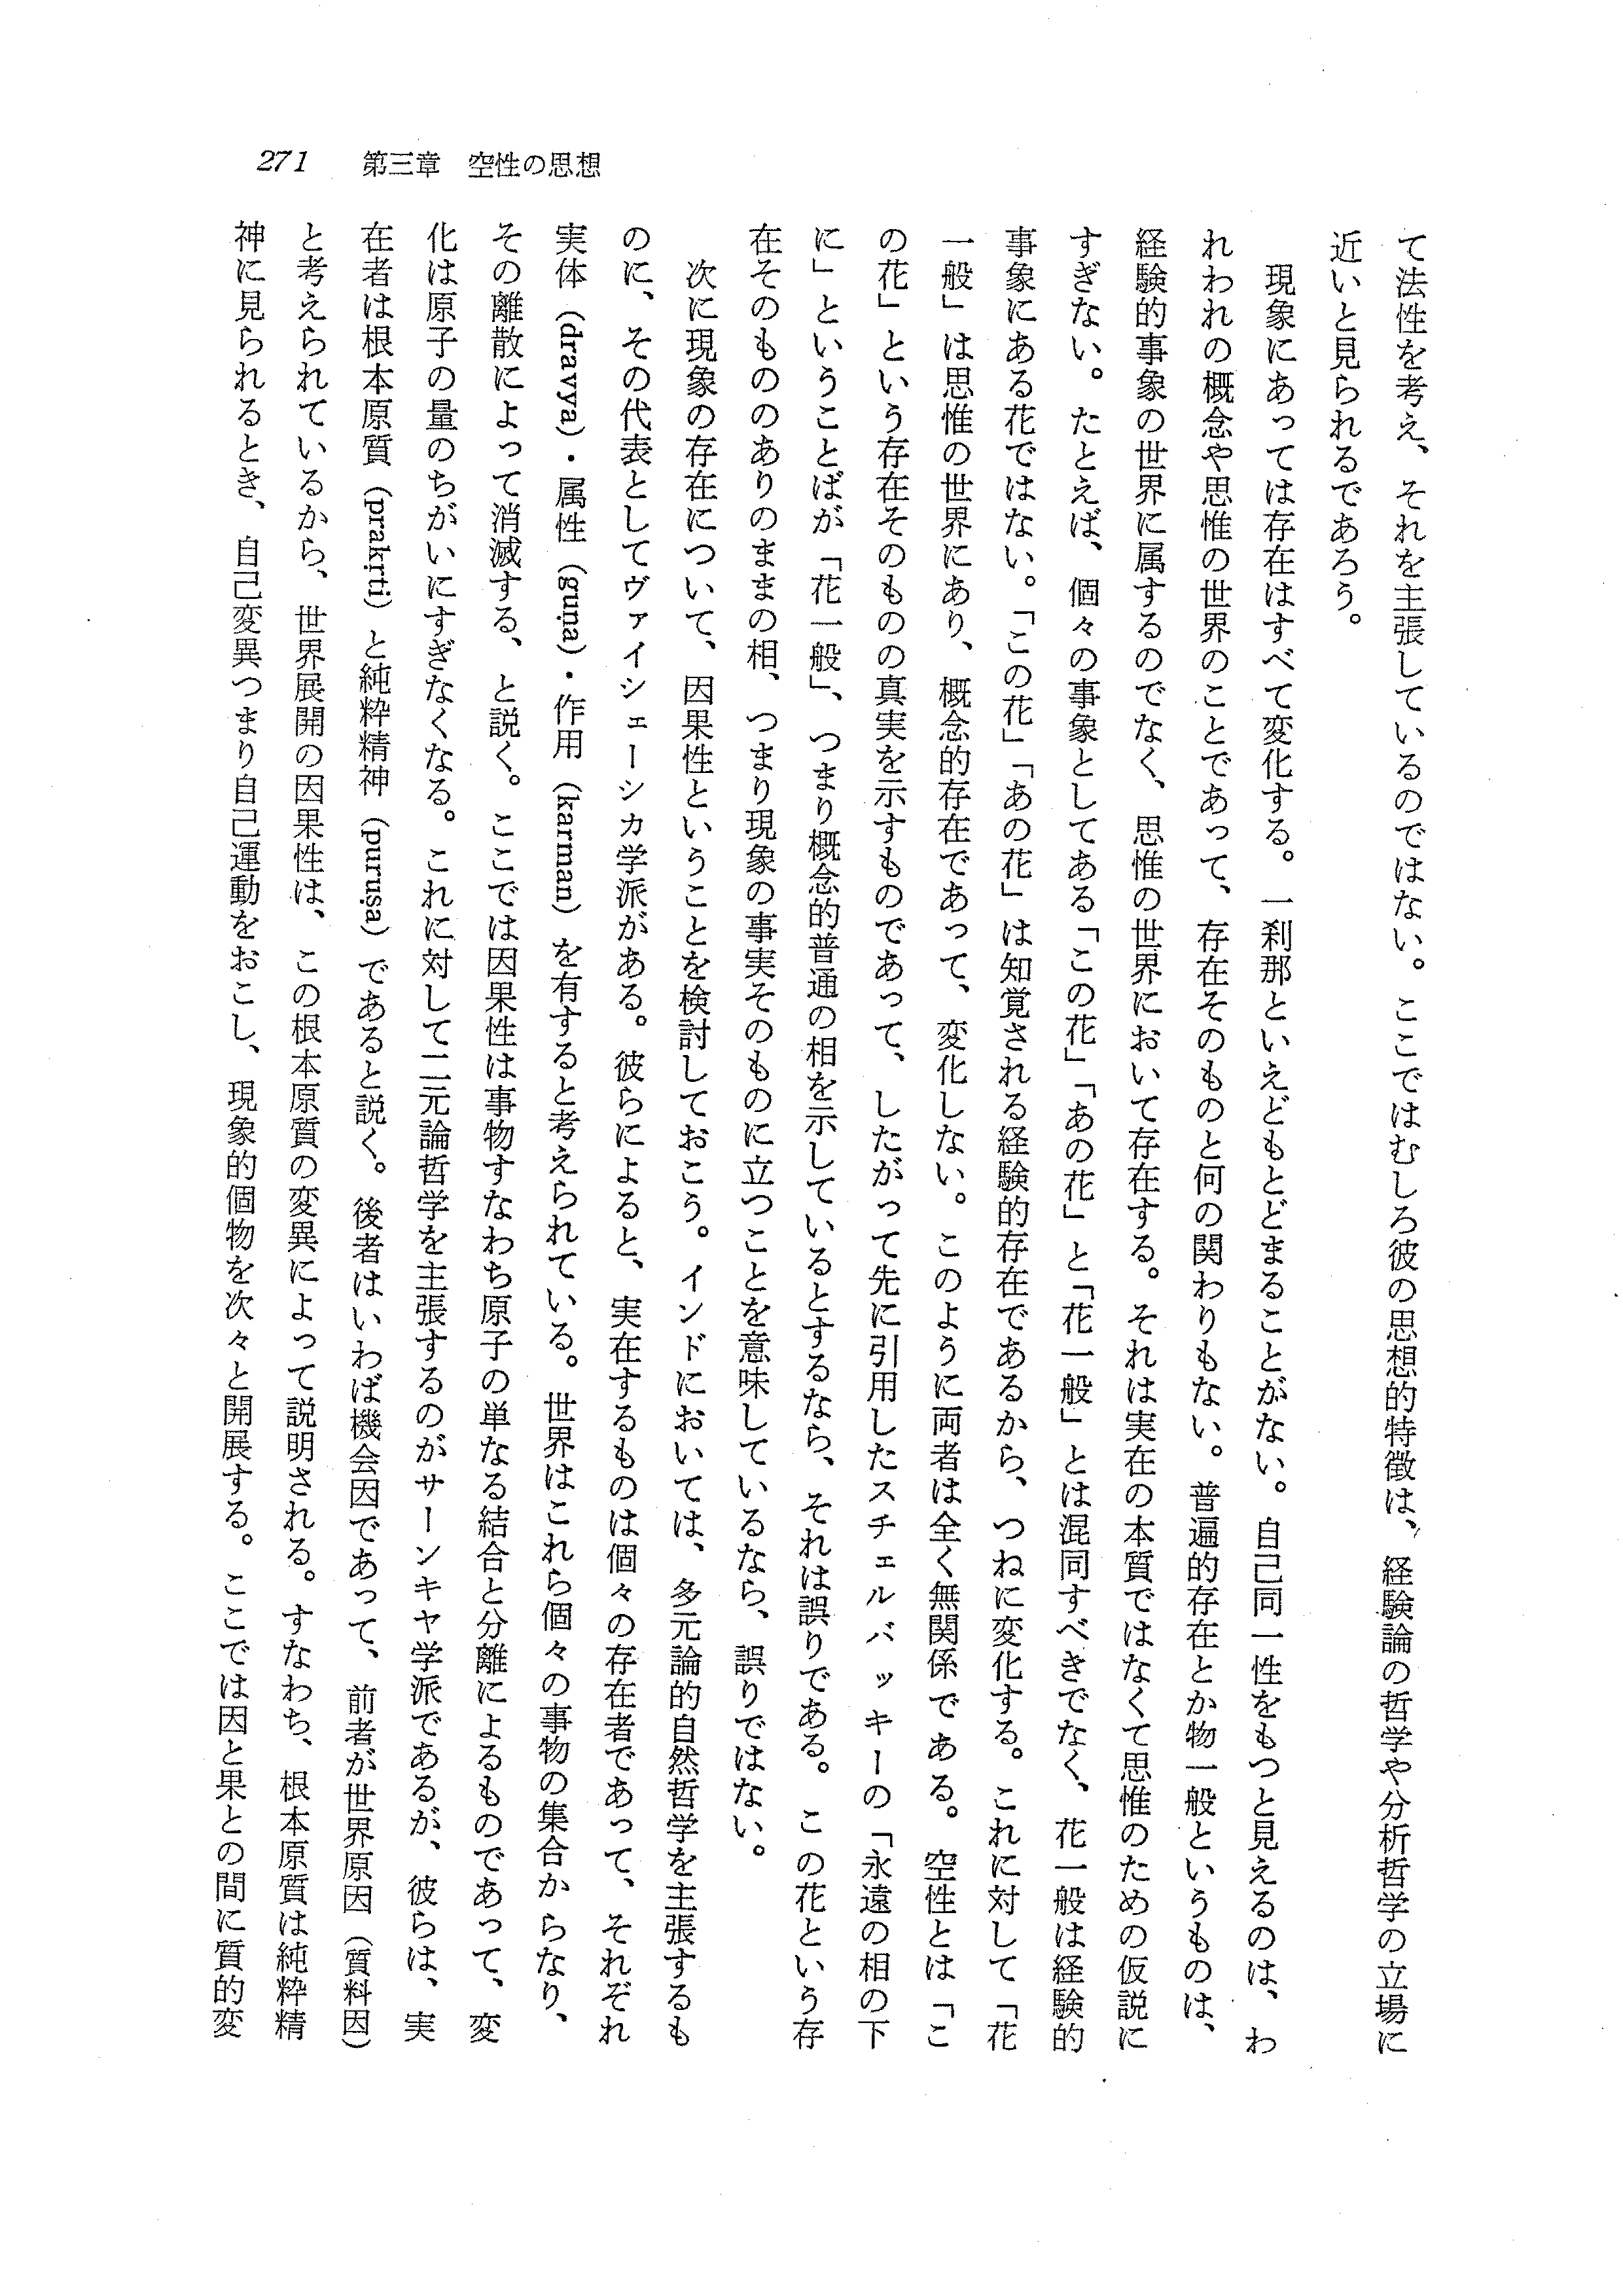 271　第三章　空性の思想
て法性を考え、それを主張しているのではない。ここではむしろ彼の思想的特徴は、経験論の哲学や分析哲学の立場に
近いと見られるであろう。
　現象にあっては存在はすべて変化する。一刹那といえどもとどまることがない。自己同一性をもつと見えるのは、わ
れわれの概念や思惟の世界のことであって、存在そのものと何の関わりもない。普遍的存在とか物一般というものは、
経験的事象の世界に属するのでなく、思惟の世界において存在する。それは実在の本質ではなくて思惟のための仮説に
すぎない。たとえば、個々の事象としてある「この花」「あの花」と「花一般」とは混同すべきでなく、花一般は経験的
事象にある花ではない。「この花」「あの花」は知覚される経験的存在であるから、つねに変化する。これに対して「花
一般」は思惟の世界にあり、概念的存在であって、変化しない。このように両者は全く無関係である。空性とは「こ
の花」という存在そのものの真実を示すものであって、したがって先に引用したスチェルバッキーの「永遠の相の下
に」ということばが「花一般」、つまり概念的普通の相を示しているとするなら、それは誤りである。この花という存
在そのもののありのままの相、つまり現象の事実そのものに立つことを意味しているなら、誤りではない。
　次に現象の存在について、因果性ということを検討しておこう。インドにおいては、多元論的自然哲学を主張するも
のに、その代表としてヴァイシェーシカ学派がある。彼らによると、実在するものは個々の存在者であって、それぞれ
実体（dravya）・属性（guṇa）・作用（karman）を有すると考えられている。世界はこれら個々の事物の集合からなり、
その離散によって消滅する、と説く。ここでは因果性は事物すなわち原子の単なる結合と分離によるものであって、変
化は原子の量のちがいにすぎなくなる。これに対して二元論哲学を主張するのがサーンキヤ学派であるが、彼らは、実
在者は根本原質（prakṛti）と純粋精神（puruṣa）であると説く。後者はいわば機会因であって、前者が世界原因（質料因）
と考えられているから、世界展開の因果性は、この根本原質の変異によって説明される。すなわち、根本原質は純粋精
神に見られるとき、自己変異つまり自己運動をおこし、現象的個物を次々と開展する。ここでは因と果との間に質的変